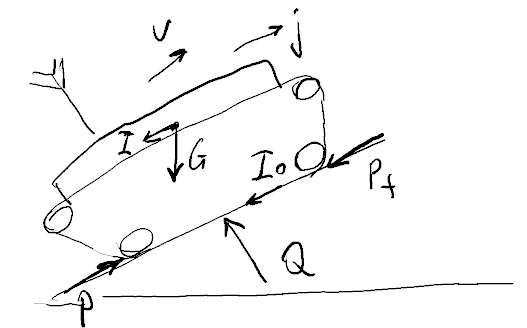 v
j
I
G
I₀
P_f
Q
P